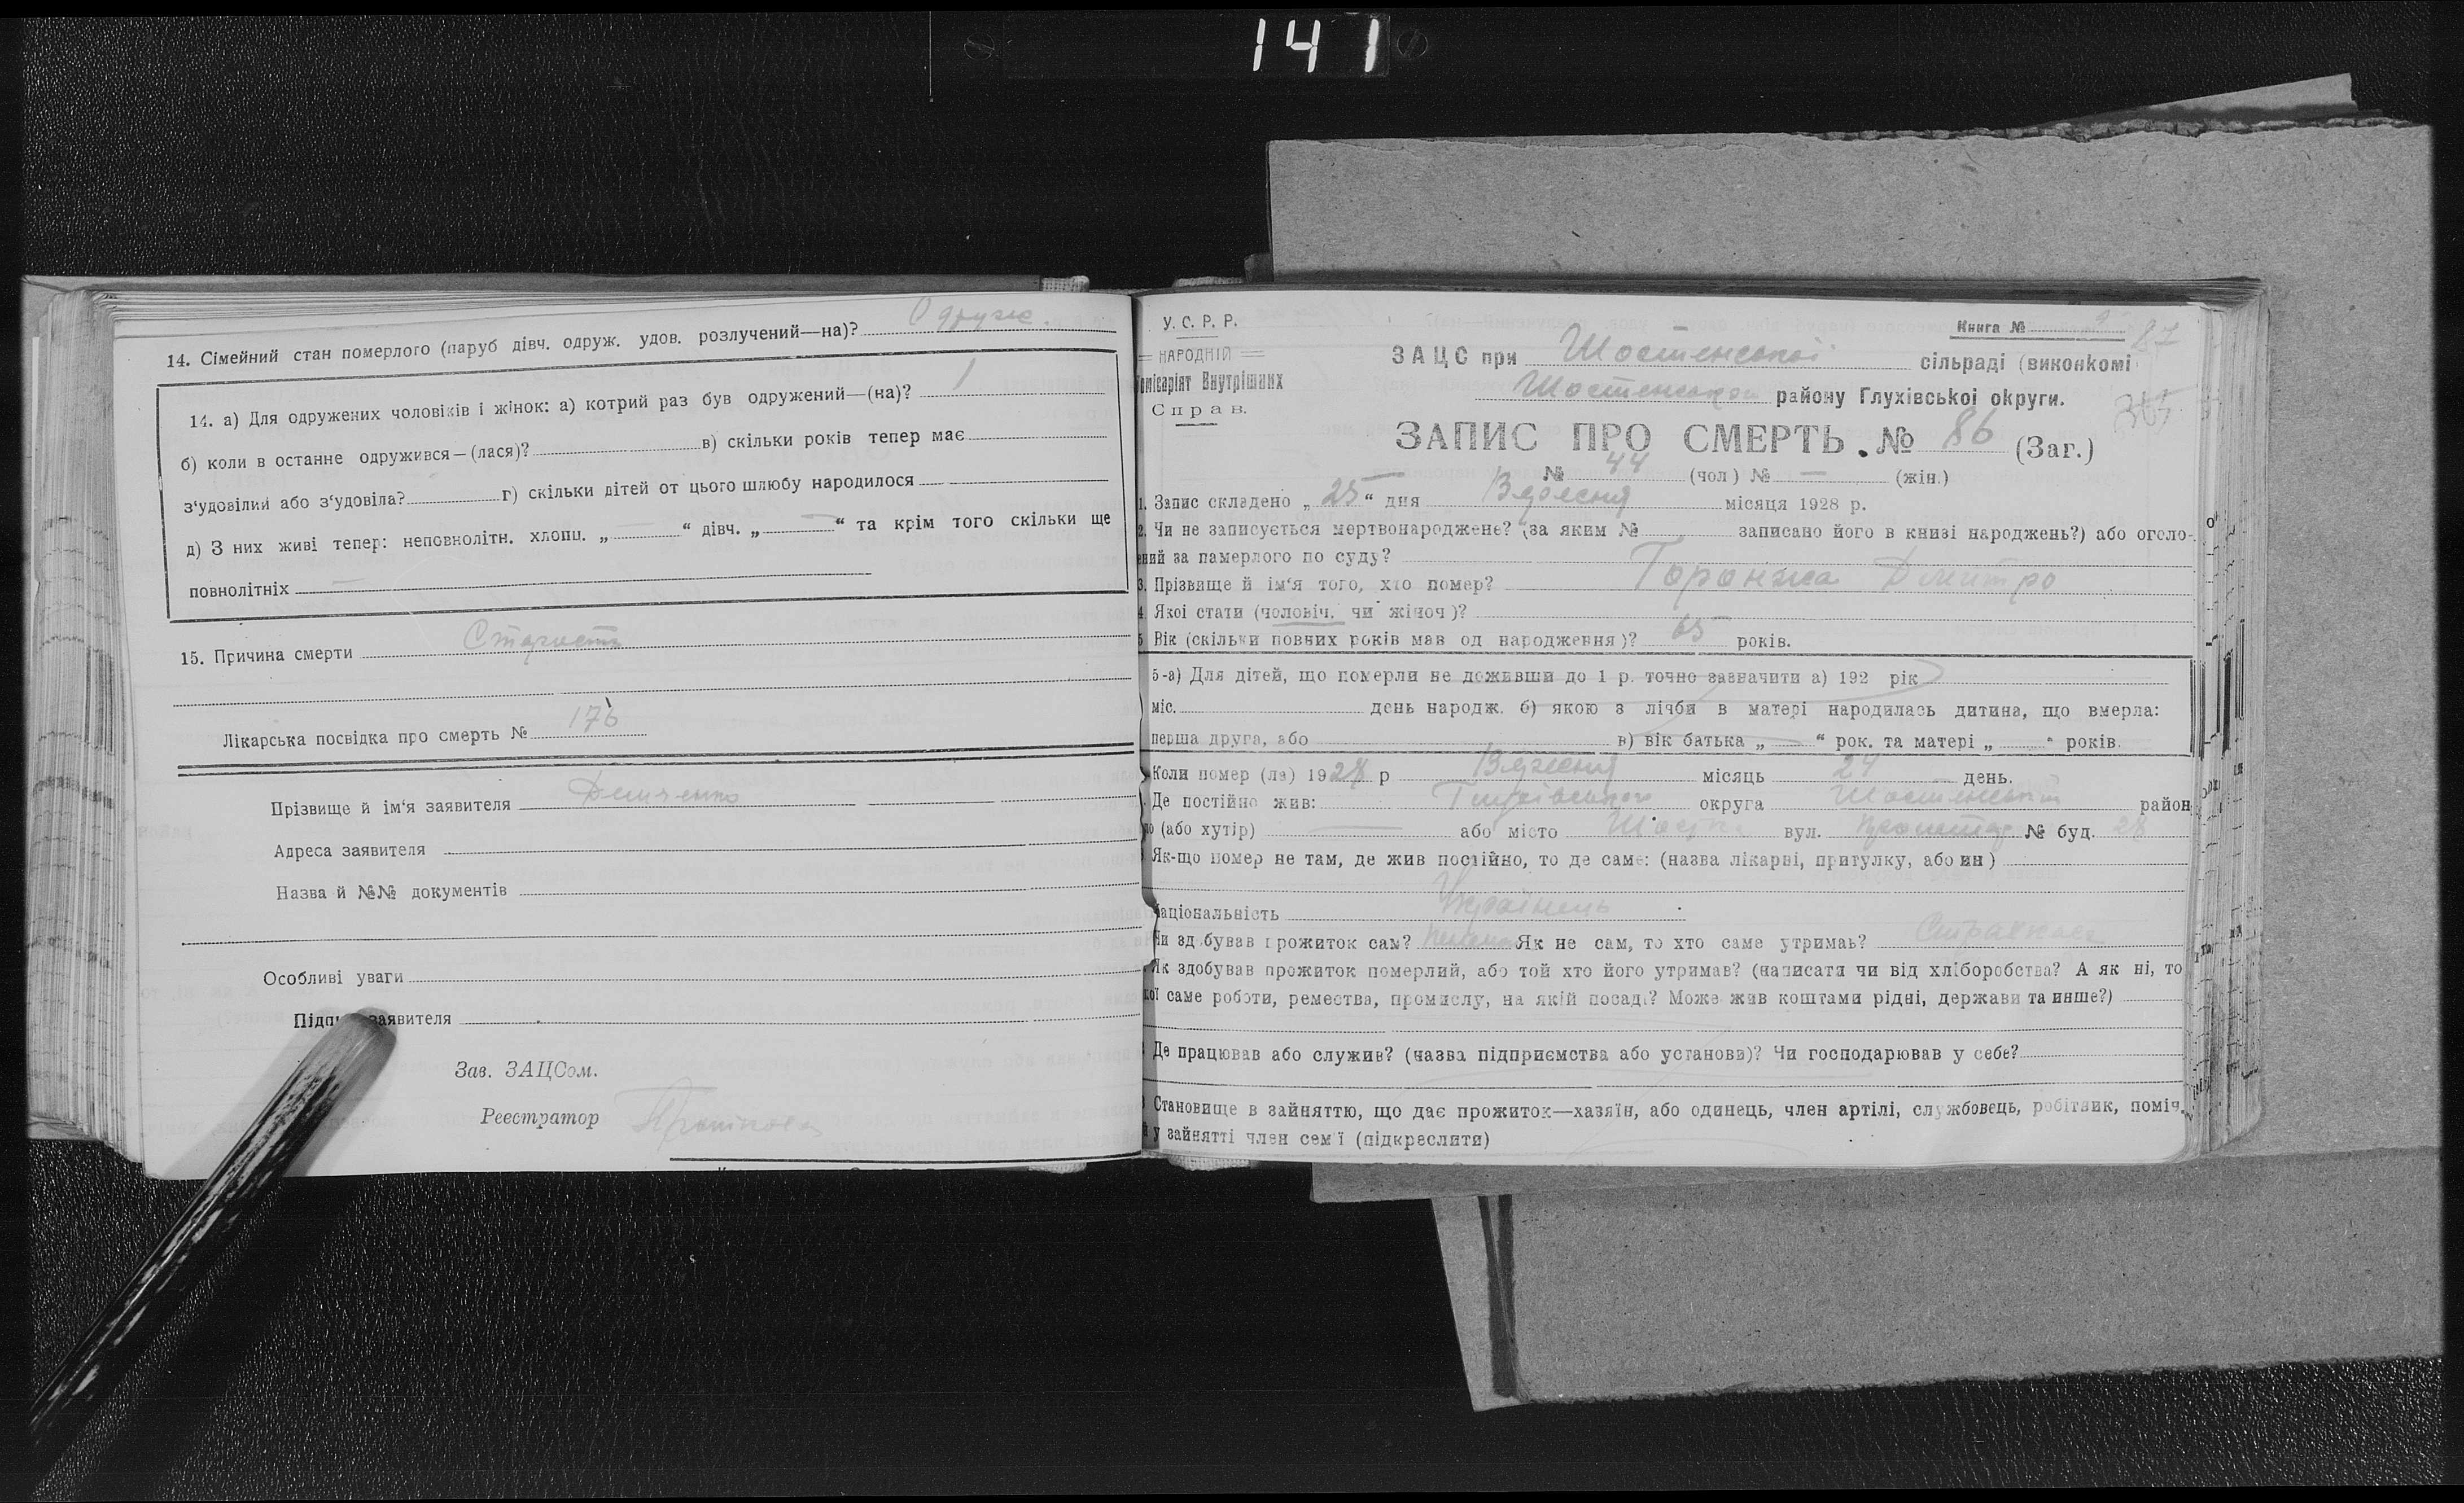 141
14. Сімейний стан померлого (паруб дівч. одруж. удов. розлучений—на)? Одруж.
14. а) Для одружених чоловіків і жінок: а) котрий раз був одружений—(на)? 1
б) коли в останне одружився—(лася)? в) скільки років тепер має
з‘удовілий або з‘удовіла? г) скільки дітей от цього шлюбу народилося —
д) З них живі тепер: неповнолітн. хлопц. „ — “ дівч. „ — “ та крім того скільки ще
повнолітніх —
15. Причина смерти Старость
Лікарська посвідка про смерть № 176
Прізвище й ім‘я заявителя —
Адреса заявителя
Назва й №№ документів
Особливі уваги
Підп заявителя
Зав. ЗАЦСом.
Реєстратор
У. С. Р. Р.
НАРОДНІЙ
Комісаріят Внутрішних
Справ.
Книга №
87
ЗАЦС при Шостенської сільраді (виконкомі
Шостенського району Глухівської округи.
ЗАПИС ПРО СМЕРТЬ. № 86 (Заг.)
№ 44 (чол) № — (жін.)
1. Запис складено „ 25 “ дня Вересня місяця 1928 р.
2. Чи не записується мертвонароджене? (за яким № записано його в книзі народжень?) або оголо-
ений за памерлого по суду?
3. Прізвище й ім‘я того, хто помер? Горонжа Дмитро
4 Якої стати (чоловіч. чи жіноч)?
5 Вік (скільки повних років мав од народження)? 65 років.
5-а) Для дітей, що померли не доживши до 1 р. точно зазначити а) 192 рік
міс. день народж. б) якою з лічби в матері народилась дитина, що вмерла:
перша друга, або в) вік батька „ — “ рок. та матері „ “ років.
Коли помер (ла) 1928 р Вересня місяць 24 день.
Де постійно жив: Глухівського округа Шостенський район
(або хутір) — або місто Шостка вул. Пролетар № буд. 28
Як-що помер не там, де жив постійно, то де саме: (назва лікарні, притулку, або ин)
Національність Українець
Чи здобував прожиток сам? Як не сам, то хто саме утримаь?
Як здобував прожиток померлий, або той хто його утримав? (написати чи від хліборобства? А як ні, то
кої саме роботи, ремества, промислу, на якій посаді? Може жив коштами рідні, держави та инше?)
Де працював або служив? (назва підприємства або установи)? Чи господарював у себе?
Становище в зайняттю, що дає прожиток—хазяїн, або одинець, член артілі, службовець, робітник, поміч.
у зайнятті член сем‘ї (підкреслити)